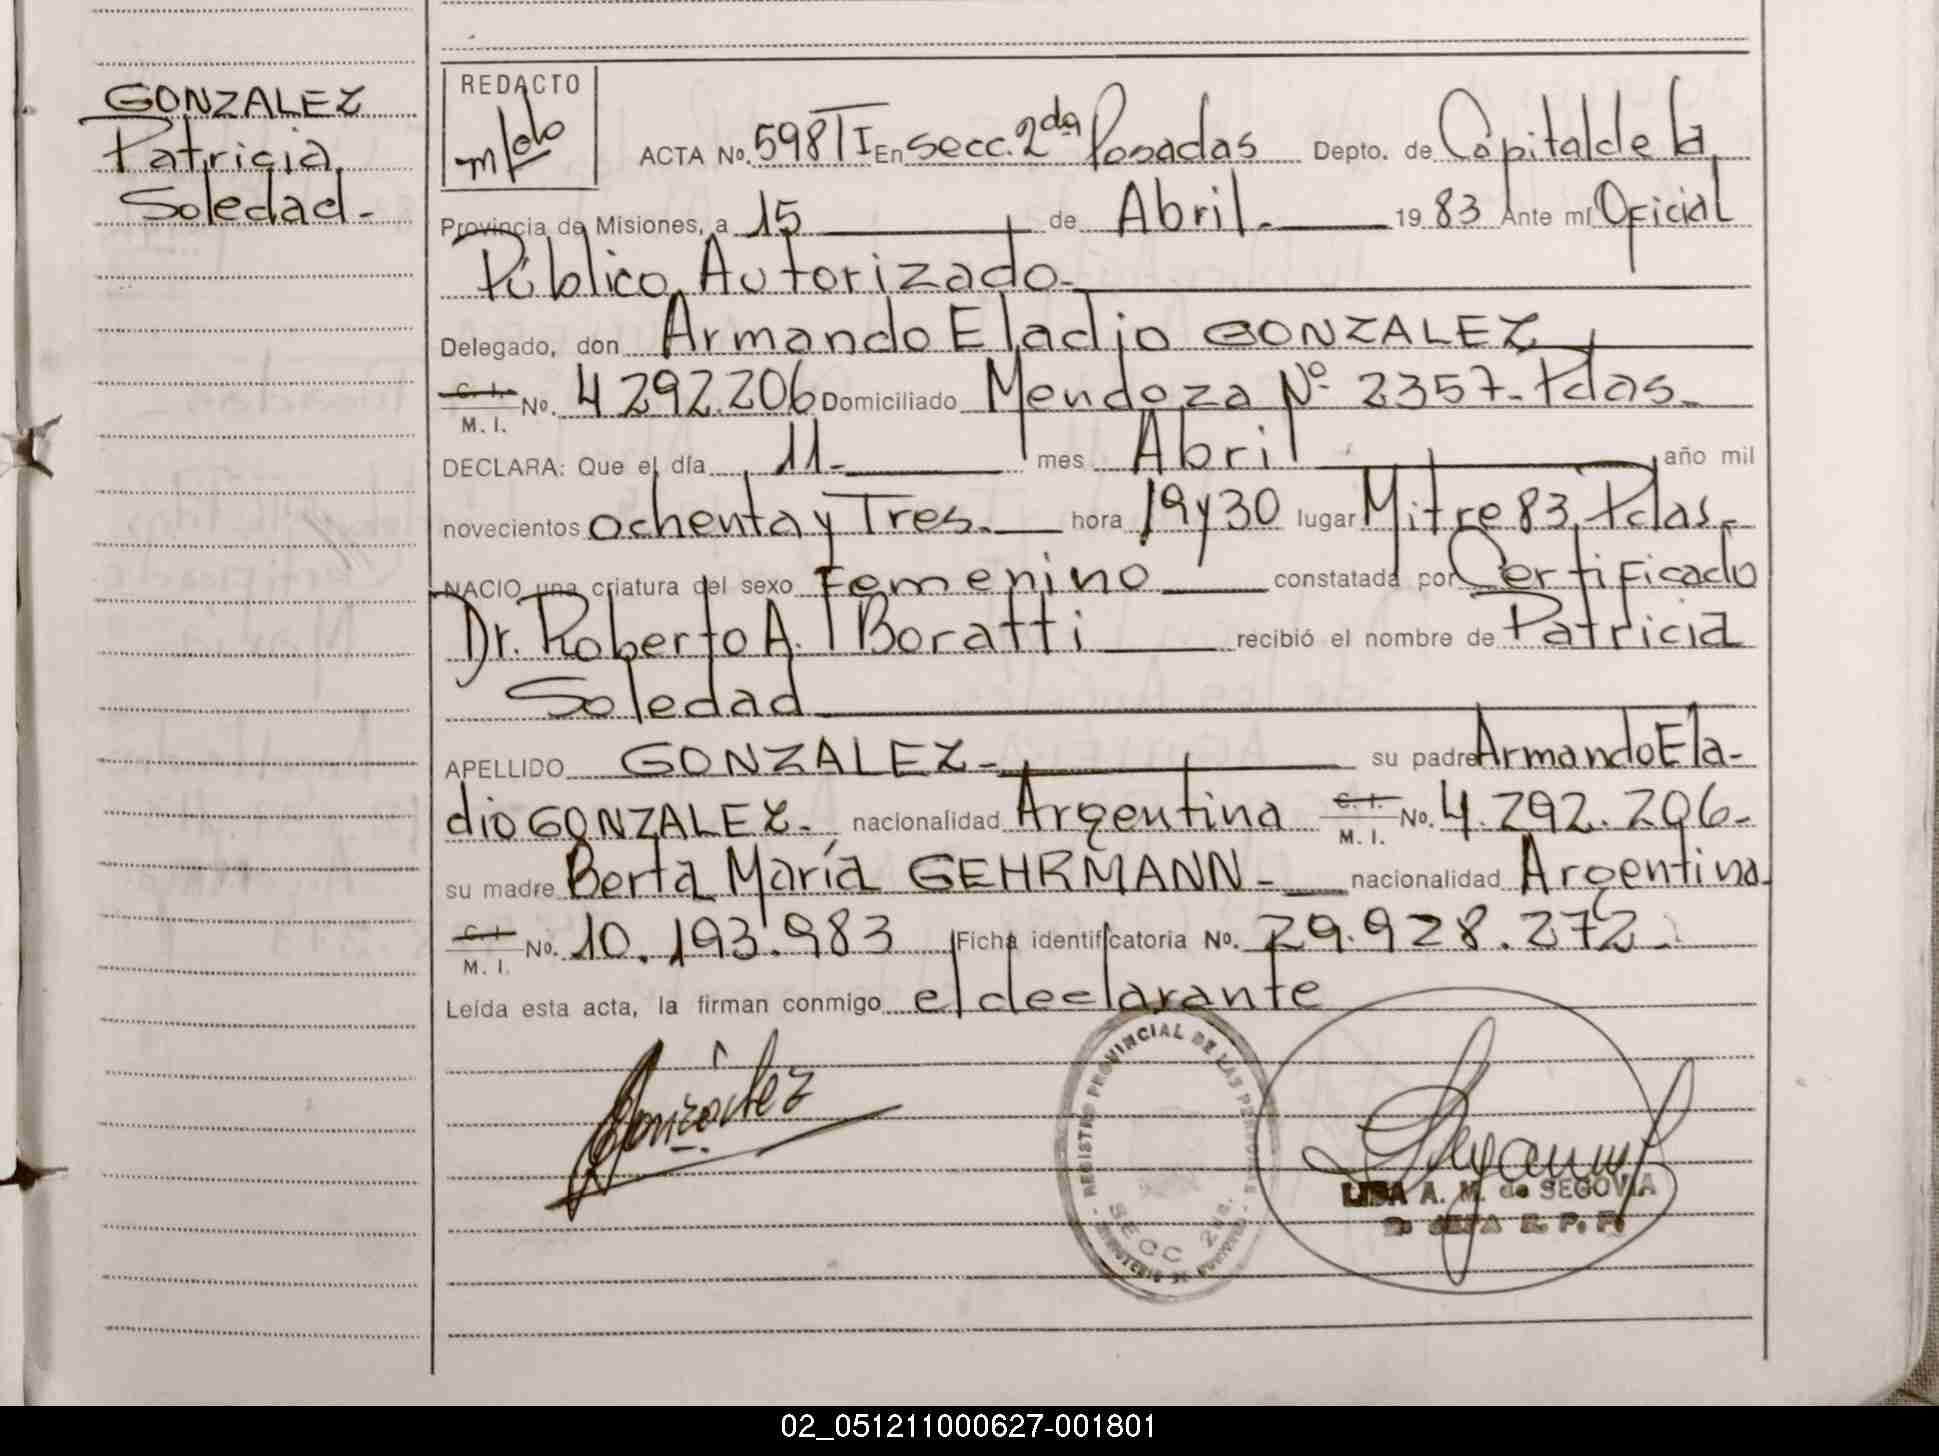 GONZALEZ
Patricia
Soledad.-
REDACTO
ACTA No. 598 TI En secc. 2da Posadas Depto. de Capital de la
Provincia de Misiones, a 15 de Abril.- 1983 Ante mí Oficial
Público Autorizado.-
Delegado, don Armando Eladio GONZALEZ
C. I.
M. I. No. 4292.206 Domiciliado Mendoza Nº 2357.- Pdas.-
DECLARA: Que el día 11.- mes Abril año mil
novecientos ochenta y Tres.- hora 19 y 30 lugar Mitre 83, Pdas.-
NACIO una criatura del sexo Femenino constatada por Certificado
Dr. Roberto A. Boratti recibió el nombre de Patricia
Soledad
APELLIDO GONZALEZ.- su padre Armando Ela-
dio GONZALEZ.- nacionalidad Argentina C. I. M. I. No. 4.292.206.-
su madre Berta María GEHRMANN.- nacionalidad Argentina
C. I.
M. I. No. 10.193.983 Ficha identificatoria No. 29.928.272.-
Leída esta acta, la firman conmigo el declarante
González
REGISTRO PROVINCIAL DE LAS PERSONAS
SECC 2da.
LISA A. M. de SEGOVIA
02_051211000627-001801